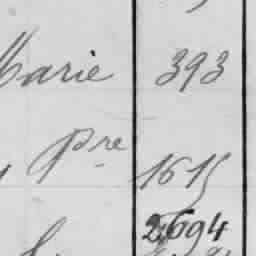 Marie 393
Pre 1615
2694